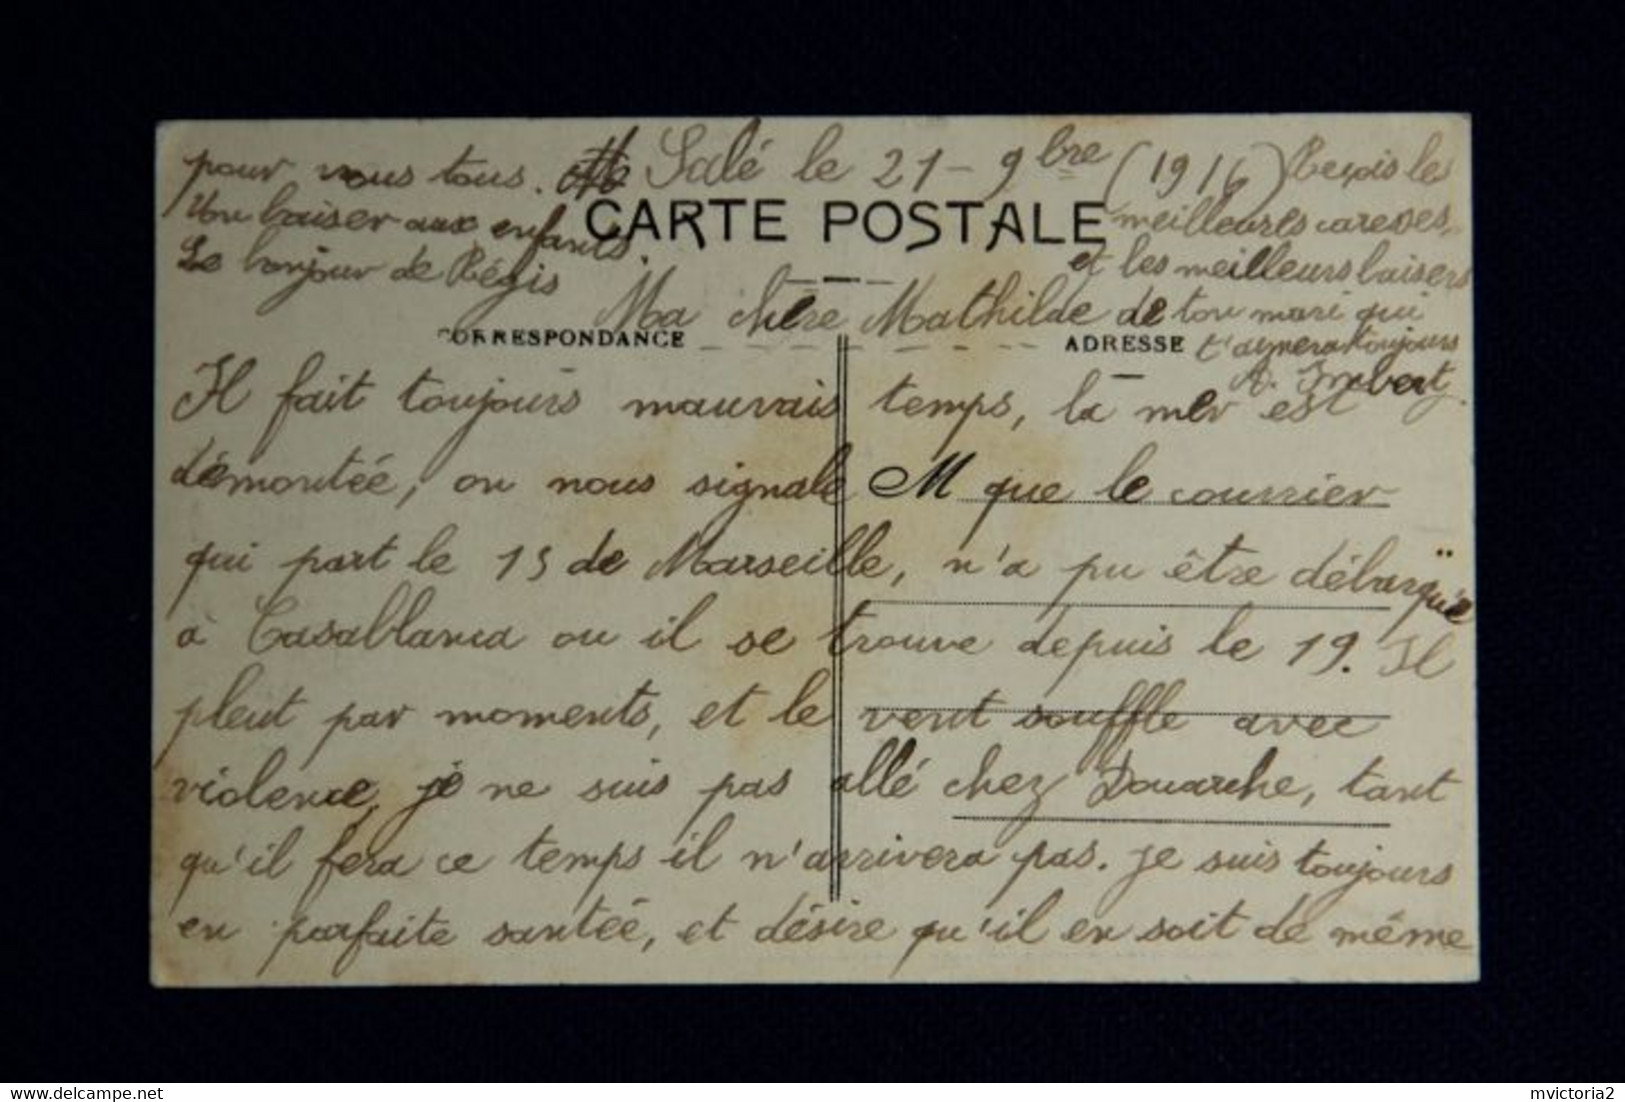 Salé le 21 - 9bre (1916)
CARTE POSTALE
Ma chère Mathilde
CORRESPONDANCE
ADRESSE
Il fait toujours mauvais temps, la mer est
démontée, on nous signale M que le courrier
qui part le 15 de Marseille, n'a pu être débarqué
à Casablanca ou il se trouve depuis le 19. Il
pleut par moments, et le vent souffle avec
violence, je ne suis pas allé chez Douarche, tant
qu'il fera ce temps il n'arrivera pas. je suis toujours
en parfaite santée, et désire qu'il en soit de même
pour vous tous.
Un baiser aux enfants.
Le bonjour de Régis
Reçois les
meilleures caresses,
et les meilleurs baisers
de ton mari qui
t'aimera toujours
A. Imbert
mvictoria2